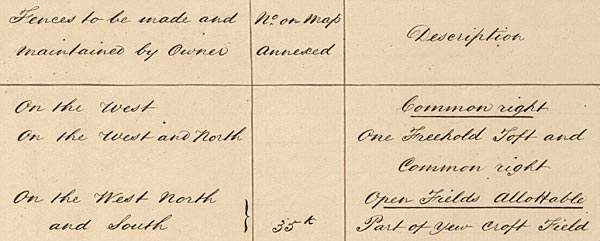 Fences to be made and
maintained by Owner
No. on Map
Annexed
Description
On the West
Common right
On the West and North
One Freehold Toft and
Common right
On the West North
and South
35k
Open Fields Allottable
Part of Yew Croft Field